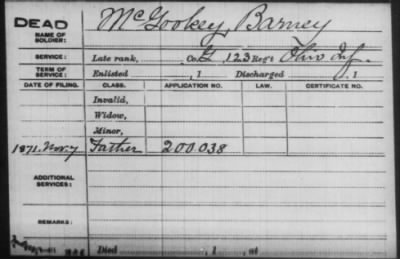 DEAD McGookey, Barney
NAME OF SOLDIER:
SERVICE: Late rank, Co. G, 123 Reg't Ohio Inf.
TERM OF SERVICE: Enlisted , 1 Discharged , 1
DATE OF FILING. CLASS. APPLICATION NO. LAW. CERTIFICATE NO.
Invalid,
Widow,
Minor,
1871. Nov. 7 Father 200.038
ADDITIONAL SERVICES:
REMARKS:
Died , 1 , at